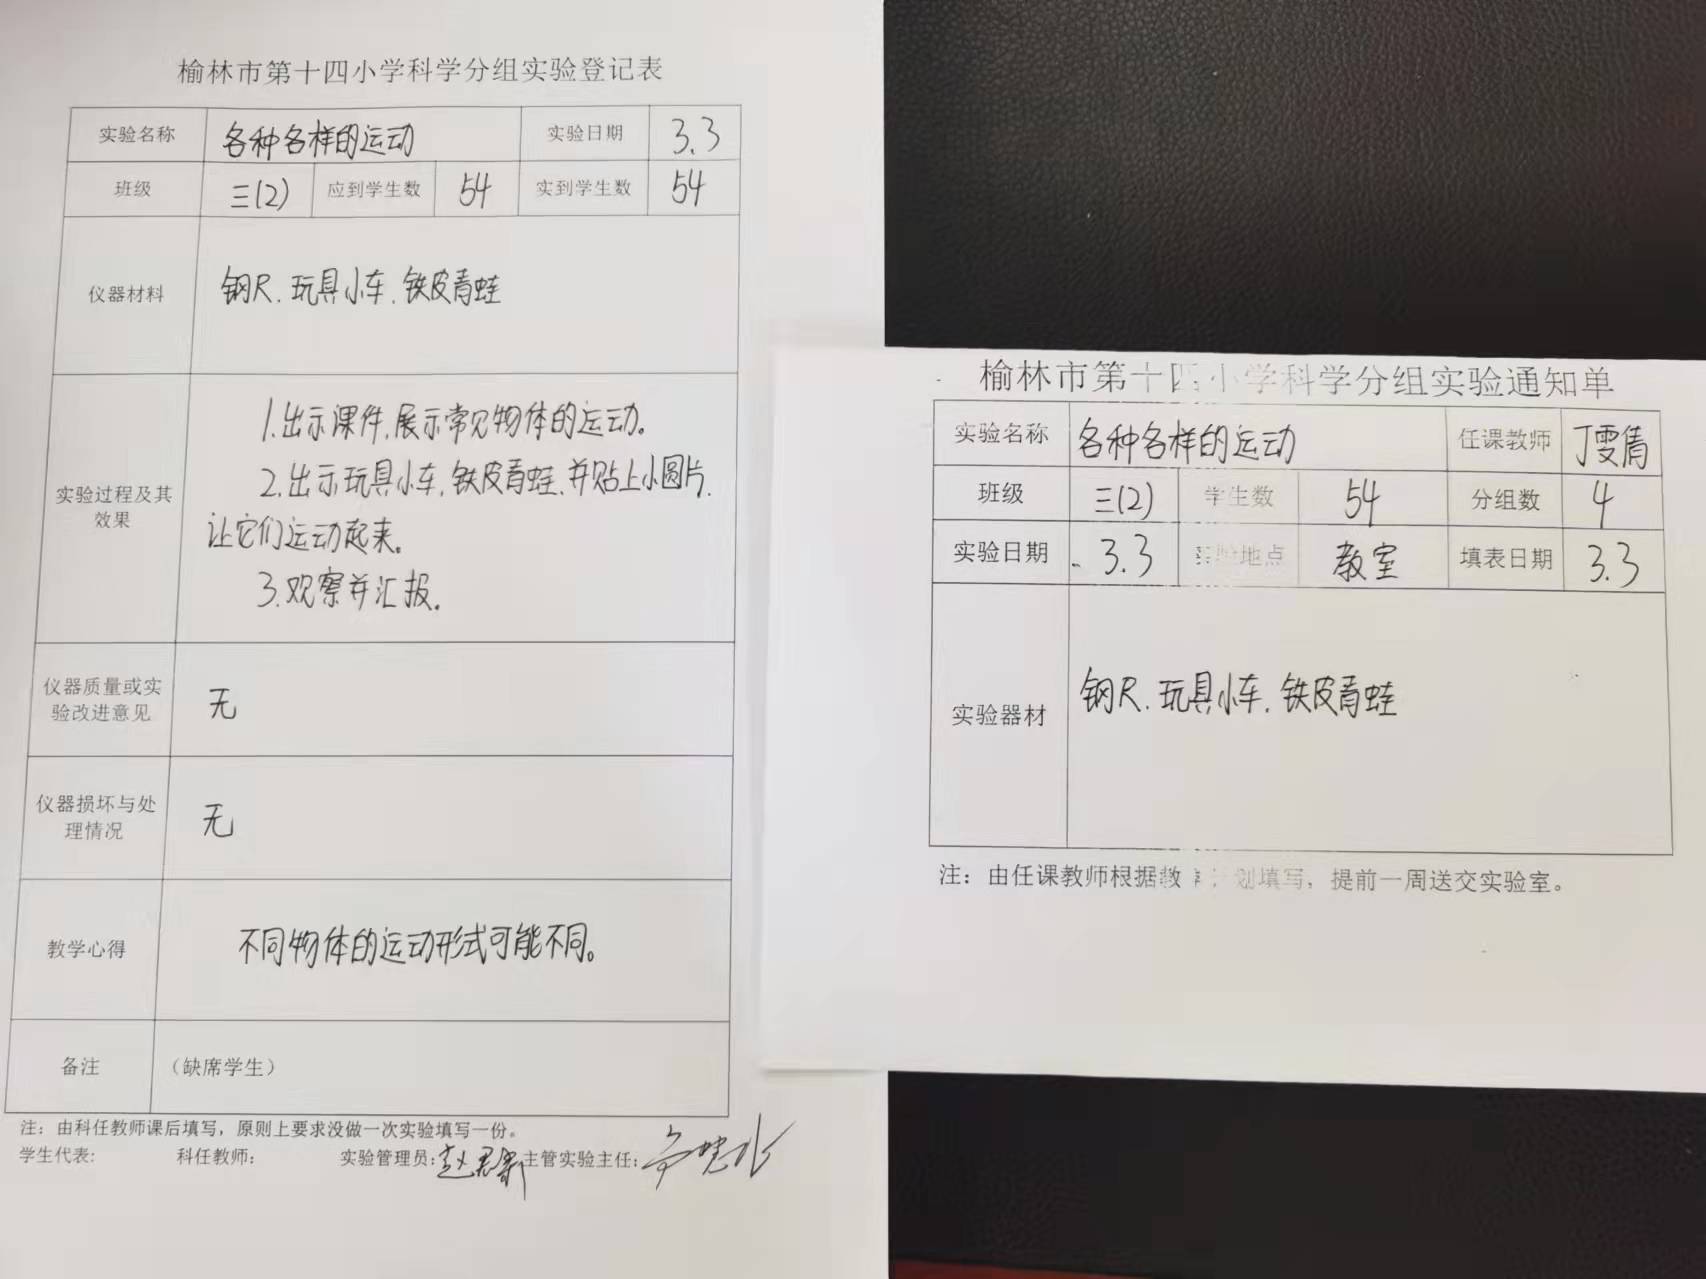 榆林市第十四小学科学分组实验登记表
实验名称 各种各样的运动 实验日期 3.3
班级 三(2) 应到学生数 54 实到学生数 54
仪器材料 钢尺、玩具小车、铁皮青蛙
实验过程及其
效果
1.出示课件,展示常见物体的运动。
2.出示玩具小车,铁皮青蛙,并贴上小圆片,
让它们运动起来。
3.观察并汇报。
仪器质量或实
验改进意见
无
仪器损坏与处
理情况
无
教学心得 不同物体的运动形式可能不同。
备注 (缺席学生)
注：由科任教师课后填写，原则上要求没做一次实验填写一份。
学生代表: 科任教师: 实验管理员: 主管实验主任:
榆林市第十四小学科学分组实验通知单
实验名称 各种各样的运动 任课教师 丁雯倩
班级 三(2) 学生数 54 分组数 4
实验日期 3.3 实验地点 教室 填表日期 3.3
实验器材 钢尺、玩具小车、铁皮青蛙
注：由任课教师根据教学计划填写，提前一周送交实验室。